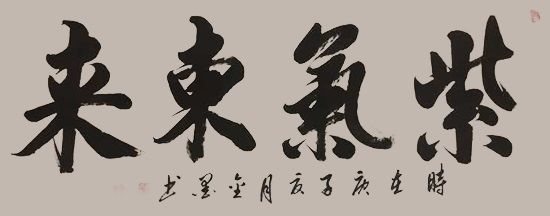 紫氣東来
時在庚子夏月金墨书